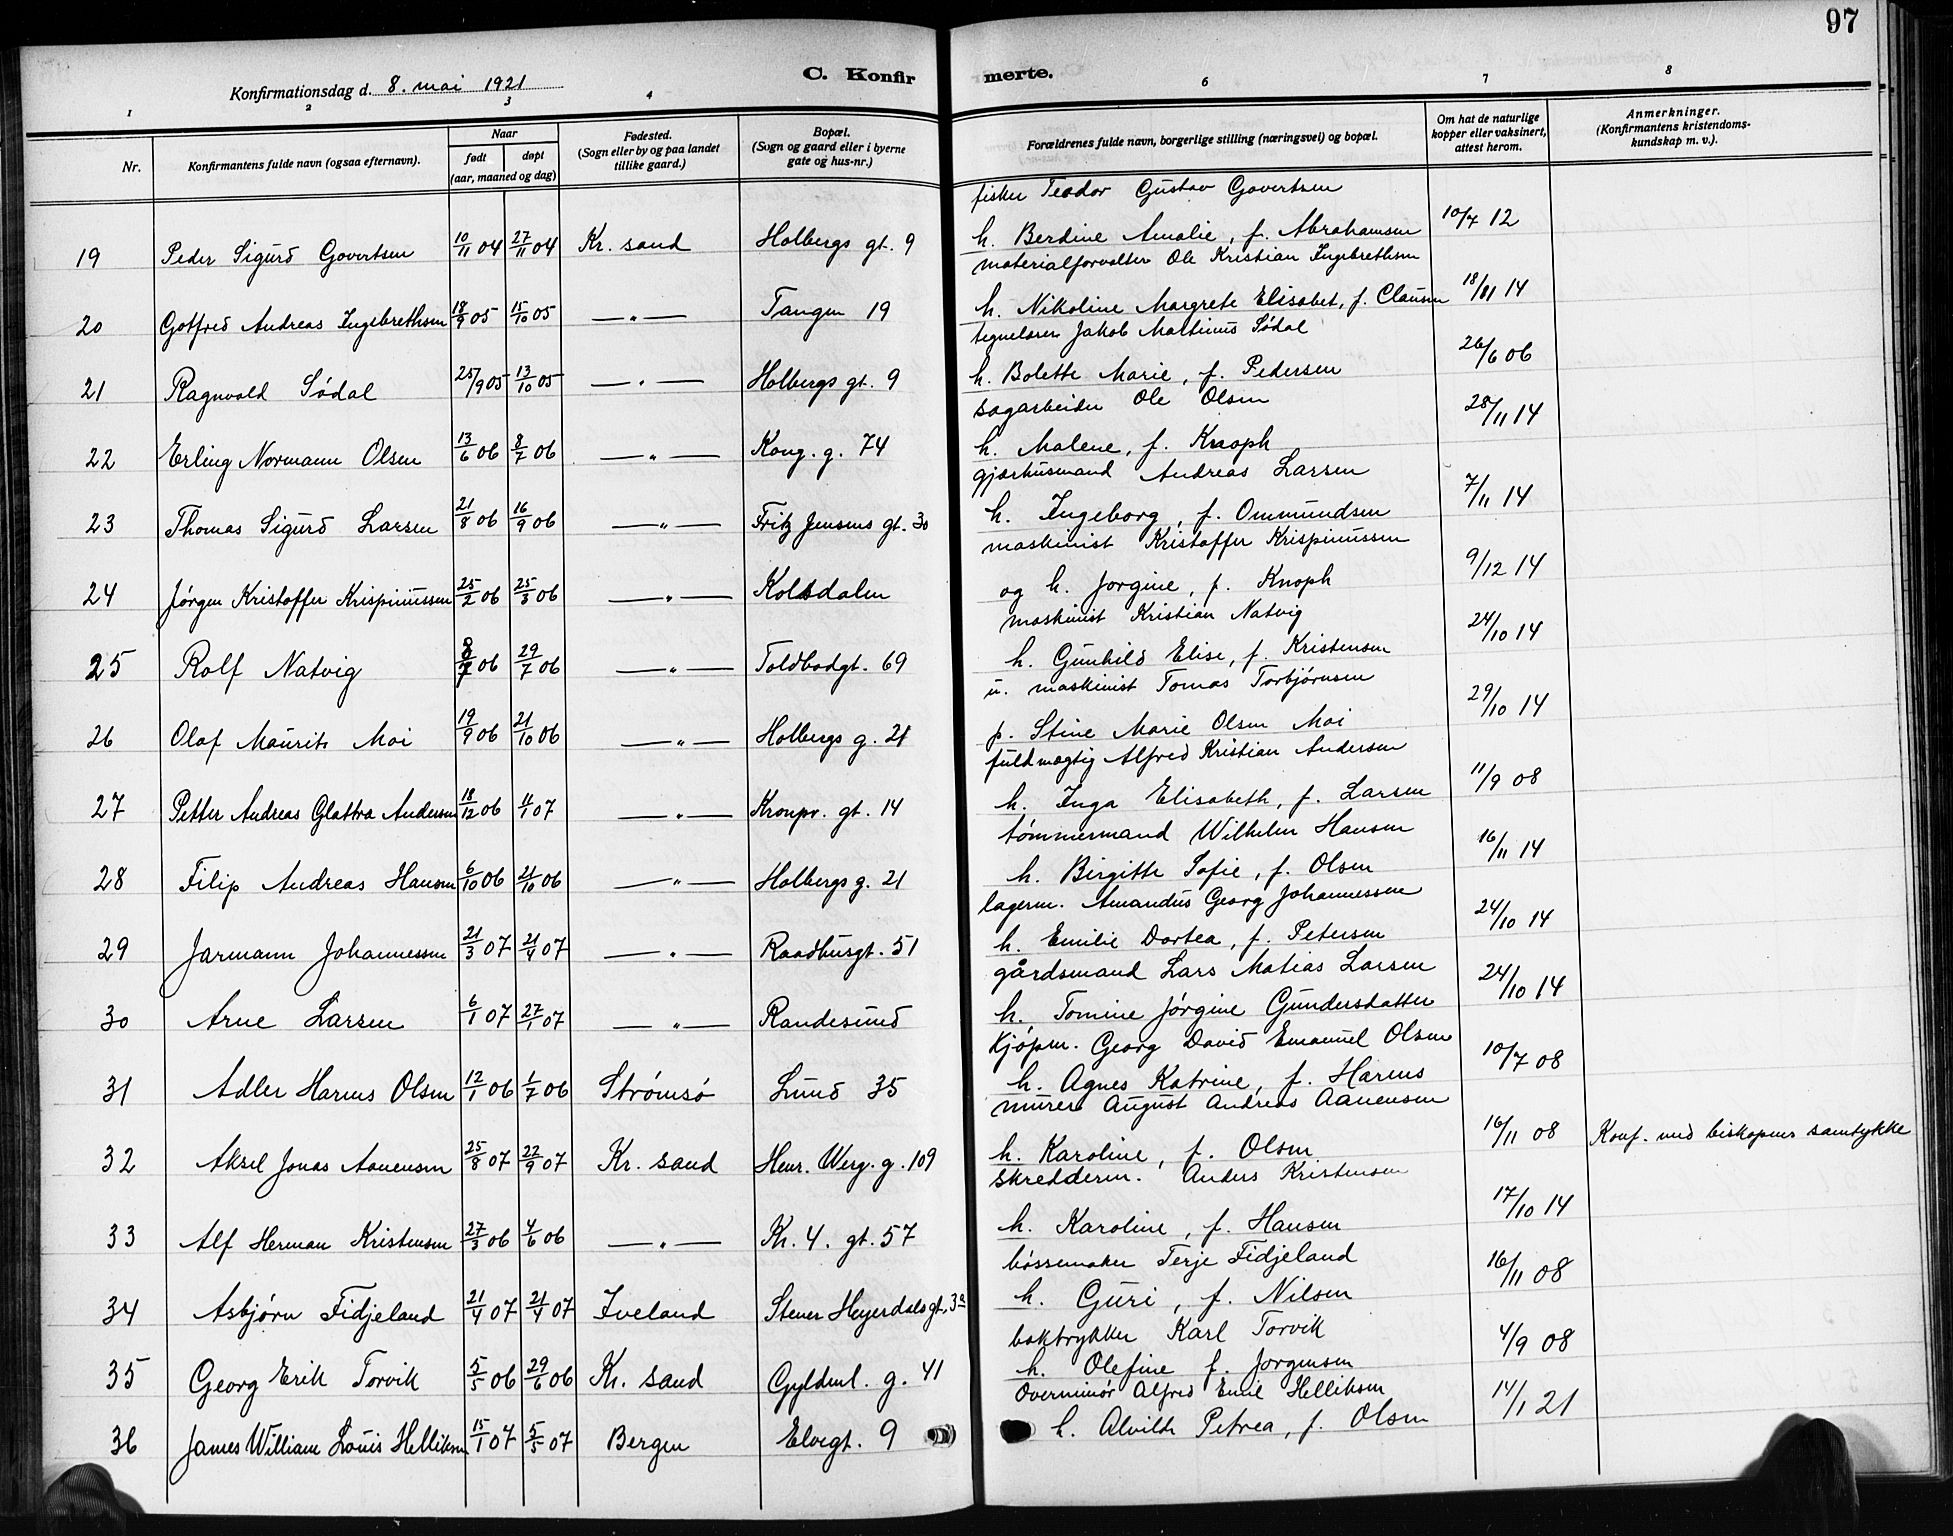 97
Konfirmationsdag d. 8. mai 1921
C. Konfirmerte.
1 2 3 4 6 7 8
Nr.
Konfirmantens fulde navn (ogsaa efternavn).
Naar
født døpt
(aar, maaned og dag)
Fødested.
(Sogn eller by og paa landet
tillike gaard.)
Bopæl.
(Sogn og gaard eller i byerne
gate og hus-nr.)
Forældrenes fulde navn, borgerlige stilling (næringsvei) og bopæl.
Om hat de naturlige
kopper eller vaksinert,
attest herom.
Anmerkninger.
(Konfirmantens kristendoms-
kundskap m. v.).
fisker Teodor Gustav Govertsen
19 Peder Sigurd Govertsen 10/11 04 27/11 04 Kr. sand Holbergs gt. 9 h. Berdine Amalie, f. Abrahamsen 10/7 12
materialforvalter Ole Kristian Ingebrethsen
20 Gotfred Andreas Ingebrethsen 18/9 05 15/10 05 —„— Tangen 19 h. Nikoline Margrete Elisabet, f. Clausen 18/11 14
tegnelærer Jakob Martinus Sødal
21 Ragnvald Sødal 25/9 05 13/10 05 —„— Holbergs gt. 9 h. Bolette Marie, f. Pedersen 26/6 06
sagarbeider Ole Olsen
22 Erling Normann Olsen 13/6 06 8/7 06 —„— Kong. g. 74 h. Malene, f. Knoph 28/11 14
gjørhusmand Andreas Larsen
23 Thomas Sigurd Larsen 21/8 06 16/9 06 —„— Fritz Jensens gt. 30 h. Ingeborg, f. Ommundsen 7/11 14
maskinist Kristoffer Krispinussen
24 Jørgen Kristoffer Krispinussen 25/2 06 25/3 06 —„— Kolsdalen og h. Jorgine, f. Knoph 9/12 14
maskinist Kristian Natvig
25 Rolf Natvig 8/7 06 29/7 06 —„— Toldbodgt. 69 h. Gunhild Elise, f. Kristensen 24/10 14
u. maskinist Tomas Torbjørnsen
26 Olaf Maurits Moi 19/9 06 21/10 06 —„— Holbergs g. 21 p. Stine Marie Olsen Moi 29/10 14
fuldmægtig Alfred Kristian Andersen
27 Petter Andreas Glattra Andersen 18/12 06 /1 07 —„— Kronpr. gt. 14 h. Inga Elisabeth, f. Larsen 11/9 08
tømmermand Wilhelm Hansen
28 Filip Andreas Hansen 6/10 06 21/10 06 —„— Holbergs g. 21 h. Birgitte Sofie, f. Olsen 16/11 14
lagerm. Amandus Georg Johannessen
29 Jarmann Johannessen 21/3 07 21/4 07 —„— Raadhusgt. 51 h. Emilie Dortea, f. Petersen 24/10 14
gårdsmand Lars Matias Larsen
30 Arne Larsen 6/1 07 27/1 07 —„— Randesund h. Tomine Jørgine Gundersdatter 24/10 14
Kjøpm. Georg David Emanuel Olsen
31 Adler Harms Olsen 12/1 06 1/7 06 Strømsø Lund 35 h. Agnes Katrine, f. Harms 10/7 08
murer August Andreas Aanensen
32 Aksel Jonas Aanensen 25/8 07 22/9 07 Kr. sand Henr. Werg. g. 109 h. Karoline, f. Olsen 16/11 08 Konf. med biskopens samtykke
skredderm. Anders Kristensen
33 Alf Herman Kristensen 27/3 06 4/6 06 —„— Kr. 4. gt. 57 h. Karoline, f. Hansen 17/10 14
bøssemaker Terje Fidjeland
34 Asbjørn Fidjeland 21/4 07 21/4 07 Iveland Stener Heyerdalsgt. 3a h. Guri, f. Nilsen 16/11 08
boktrykker Karl Torvik
35 Georg Erik Torvik 5/5 06 29/6 06 Kr. sand Gyldenl. g. 41 h. Olefine f. Jorgensen 4/9 08
Overminør Alfred Emil Helliksen
36 James William Louis Helliksen 15/1 07 5/5 07 Bergen Elvegt. 9 h. Alvilde Petrea, f. Olsen 14/1 21